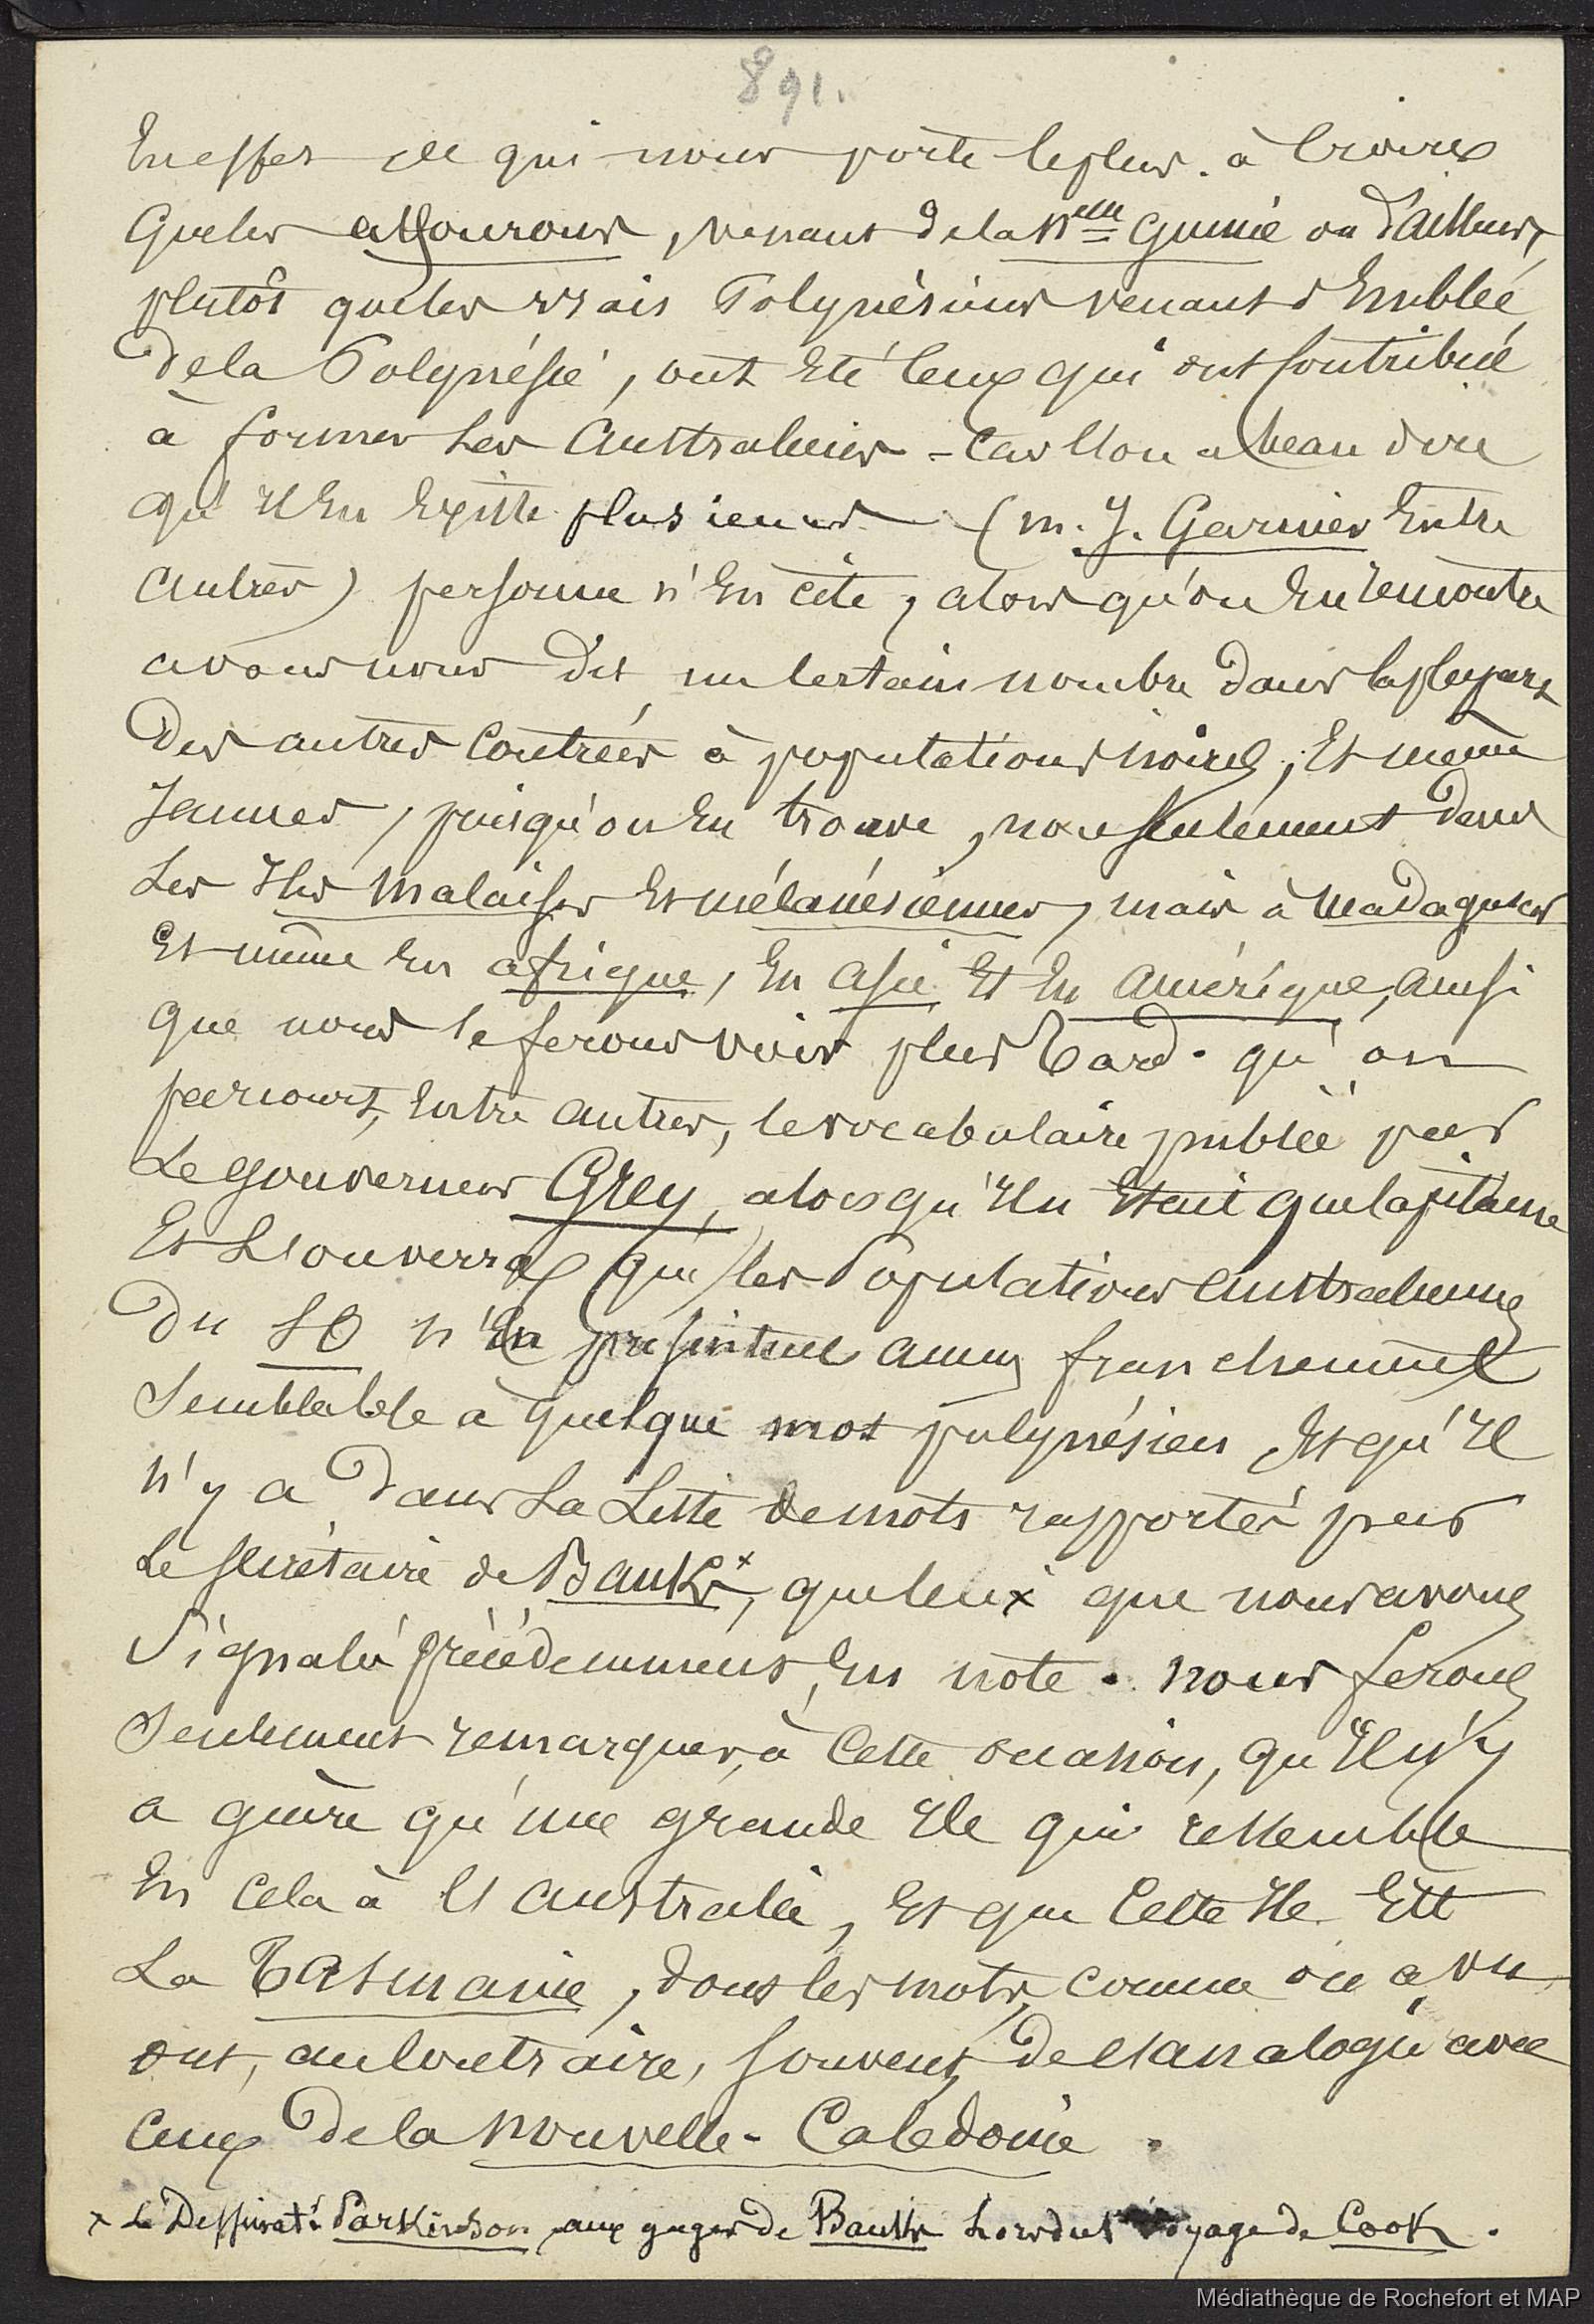 891.
En effet ce qui nous porte le plus à croire
que les alfourous, venant de la Nelle Guinée ou d'ailleurs,
plutôt que les vrais Polynésiens venant d'Emblée
de la Polynésie, ont été ceux qui ont contribué
à former les Australiens - Car l'on a beau dire
qu'il en existe plusieurs (M. J. Garnier Entre
autres) personne n'en cite, alors qu'on en rencontre
avons nous dit un certain nombre dans la plupart
des autres contrées à populations noires, et même
Jaunes, puisqu'on en trouve, non seulement dans
les Iles Malaises et mélanésiennes, mais à Madagascar
et même en afrique, en asie et en amérique, ainsi
que nous le ferons voir plus tard. qu'on
parcourt, entre autres, le vocabulaire publié par
le gouverneur Grey, alors qu'il n'etait que capitaine
et l'on verra que les Populations australiennes
du SO n'en présentent aucun franchement
semblable à quelque mot polynésien et qu'il
n'y a dans la liste de mots rapportés par
le secrétaire de Banks x, que ceux que nous avons
signalés précédemment en note. nous ferons
seulement remarquer, à cette occasion, qu'il n'y
a guère qu'une grande Ile qui ressemble
en cela à l'australie, et que cette Ile est
la Tasmanie, dont les mots, comme on a vu
ont, au contraire, souvent de l'analogie avec
ceux de la Nouvelle-Calédonie.
x le Dessinatr Parkinson aux gages de Banks lors du 1er voyage de Cook.
Médiathèque de Rochefort et MAP